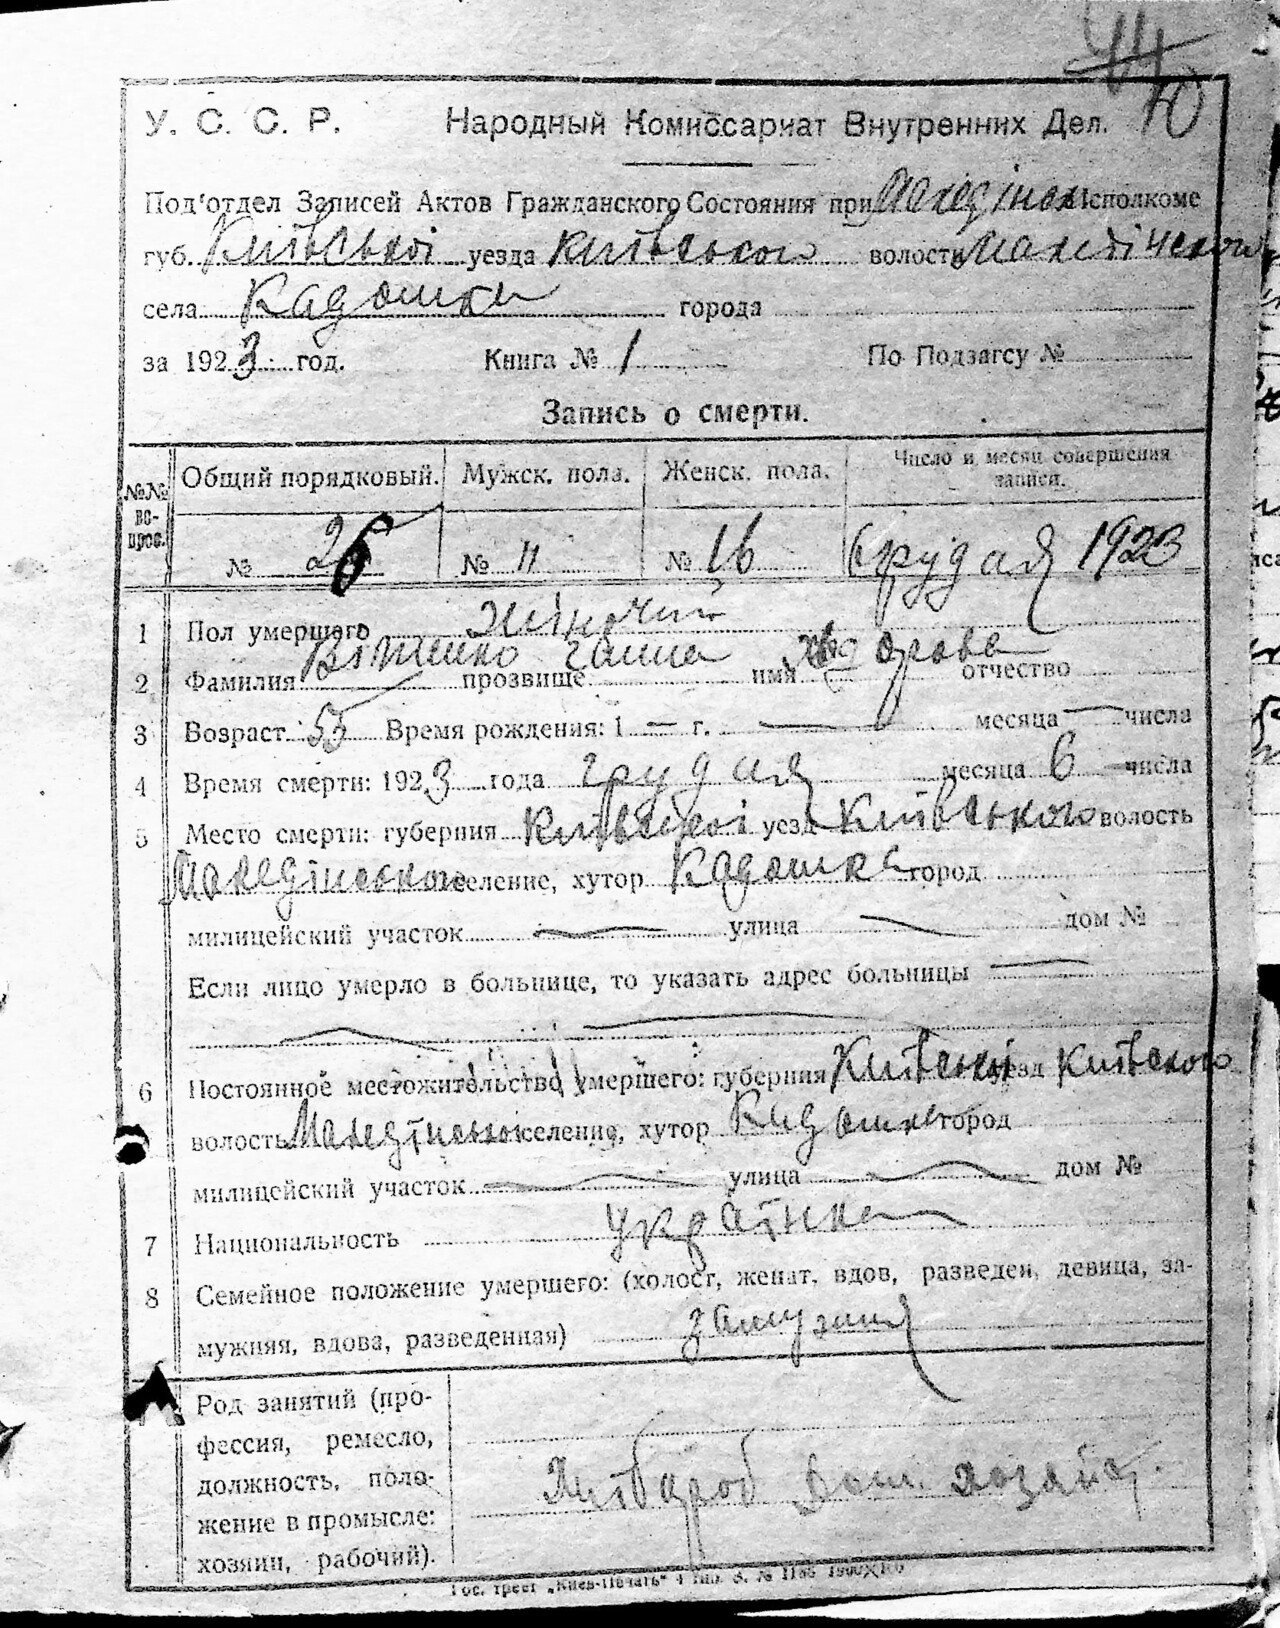 44
70
У. С. С. Р. Народный Комиссариат Внутренних Дел.
Под'отдел Записей Актов Гражданского Состояния при Исполкоме
губ. Київської уезда Київського волости
села Кадомка города
за 1923 год. Книга № 1 По Подзагсу №
Запись о смерти.
№№ вопрос. Общий порядковый. Мужск. пола. Женск. пола. Число и месяц совершения записи.
№ 26 № 11 № 16 6 грудая 1923
1 Пол умершего жіночий
2 Фамилия прозвище Ганна имя отчество
3 Возраст 55 Время рождения: 1 — г. — месяца — числа
4 Время смерти: 1923 года грудая месяца 6 числа
5 Место смерти: губерния Київської уезд Київського волость
селение, хутор Кадомка город
милицейский участок — улица — дом №
Если лицо умерло в больнице, то указать адрес больницы —
6 Постоянное местожительство умершего: губерния Київської уезд Київского
волость селение, хутор Кадомка город
милицейский участок — улица — дом №
7 Национальность Українка
8 Семейное положение умершего: (холост, женат, вдов, разведен, девица, за-
мужняя, вдова, разведенная) замужня
Род занятий (про-
фессия, ремесло,
должность, поло-
жение в промысле:
хозяин, рабочий). Хлібороб Дом. хозяйс.
Гос. трест „Киев-Печать"